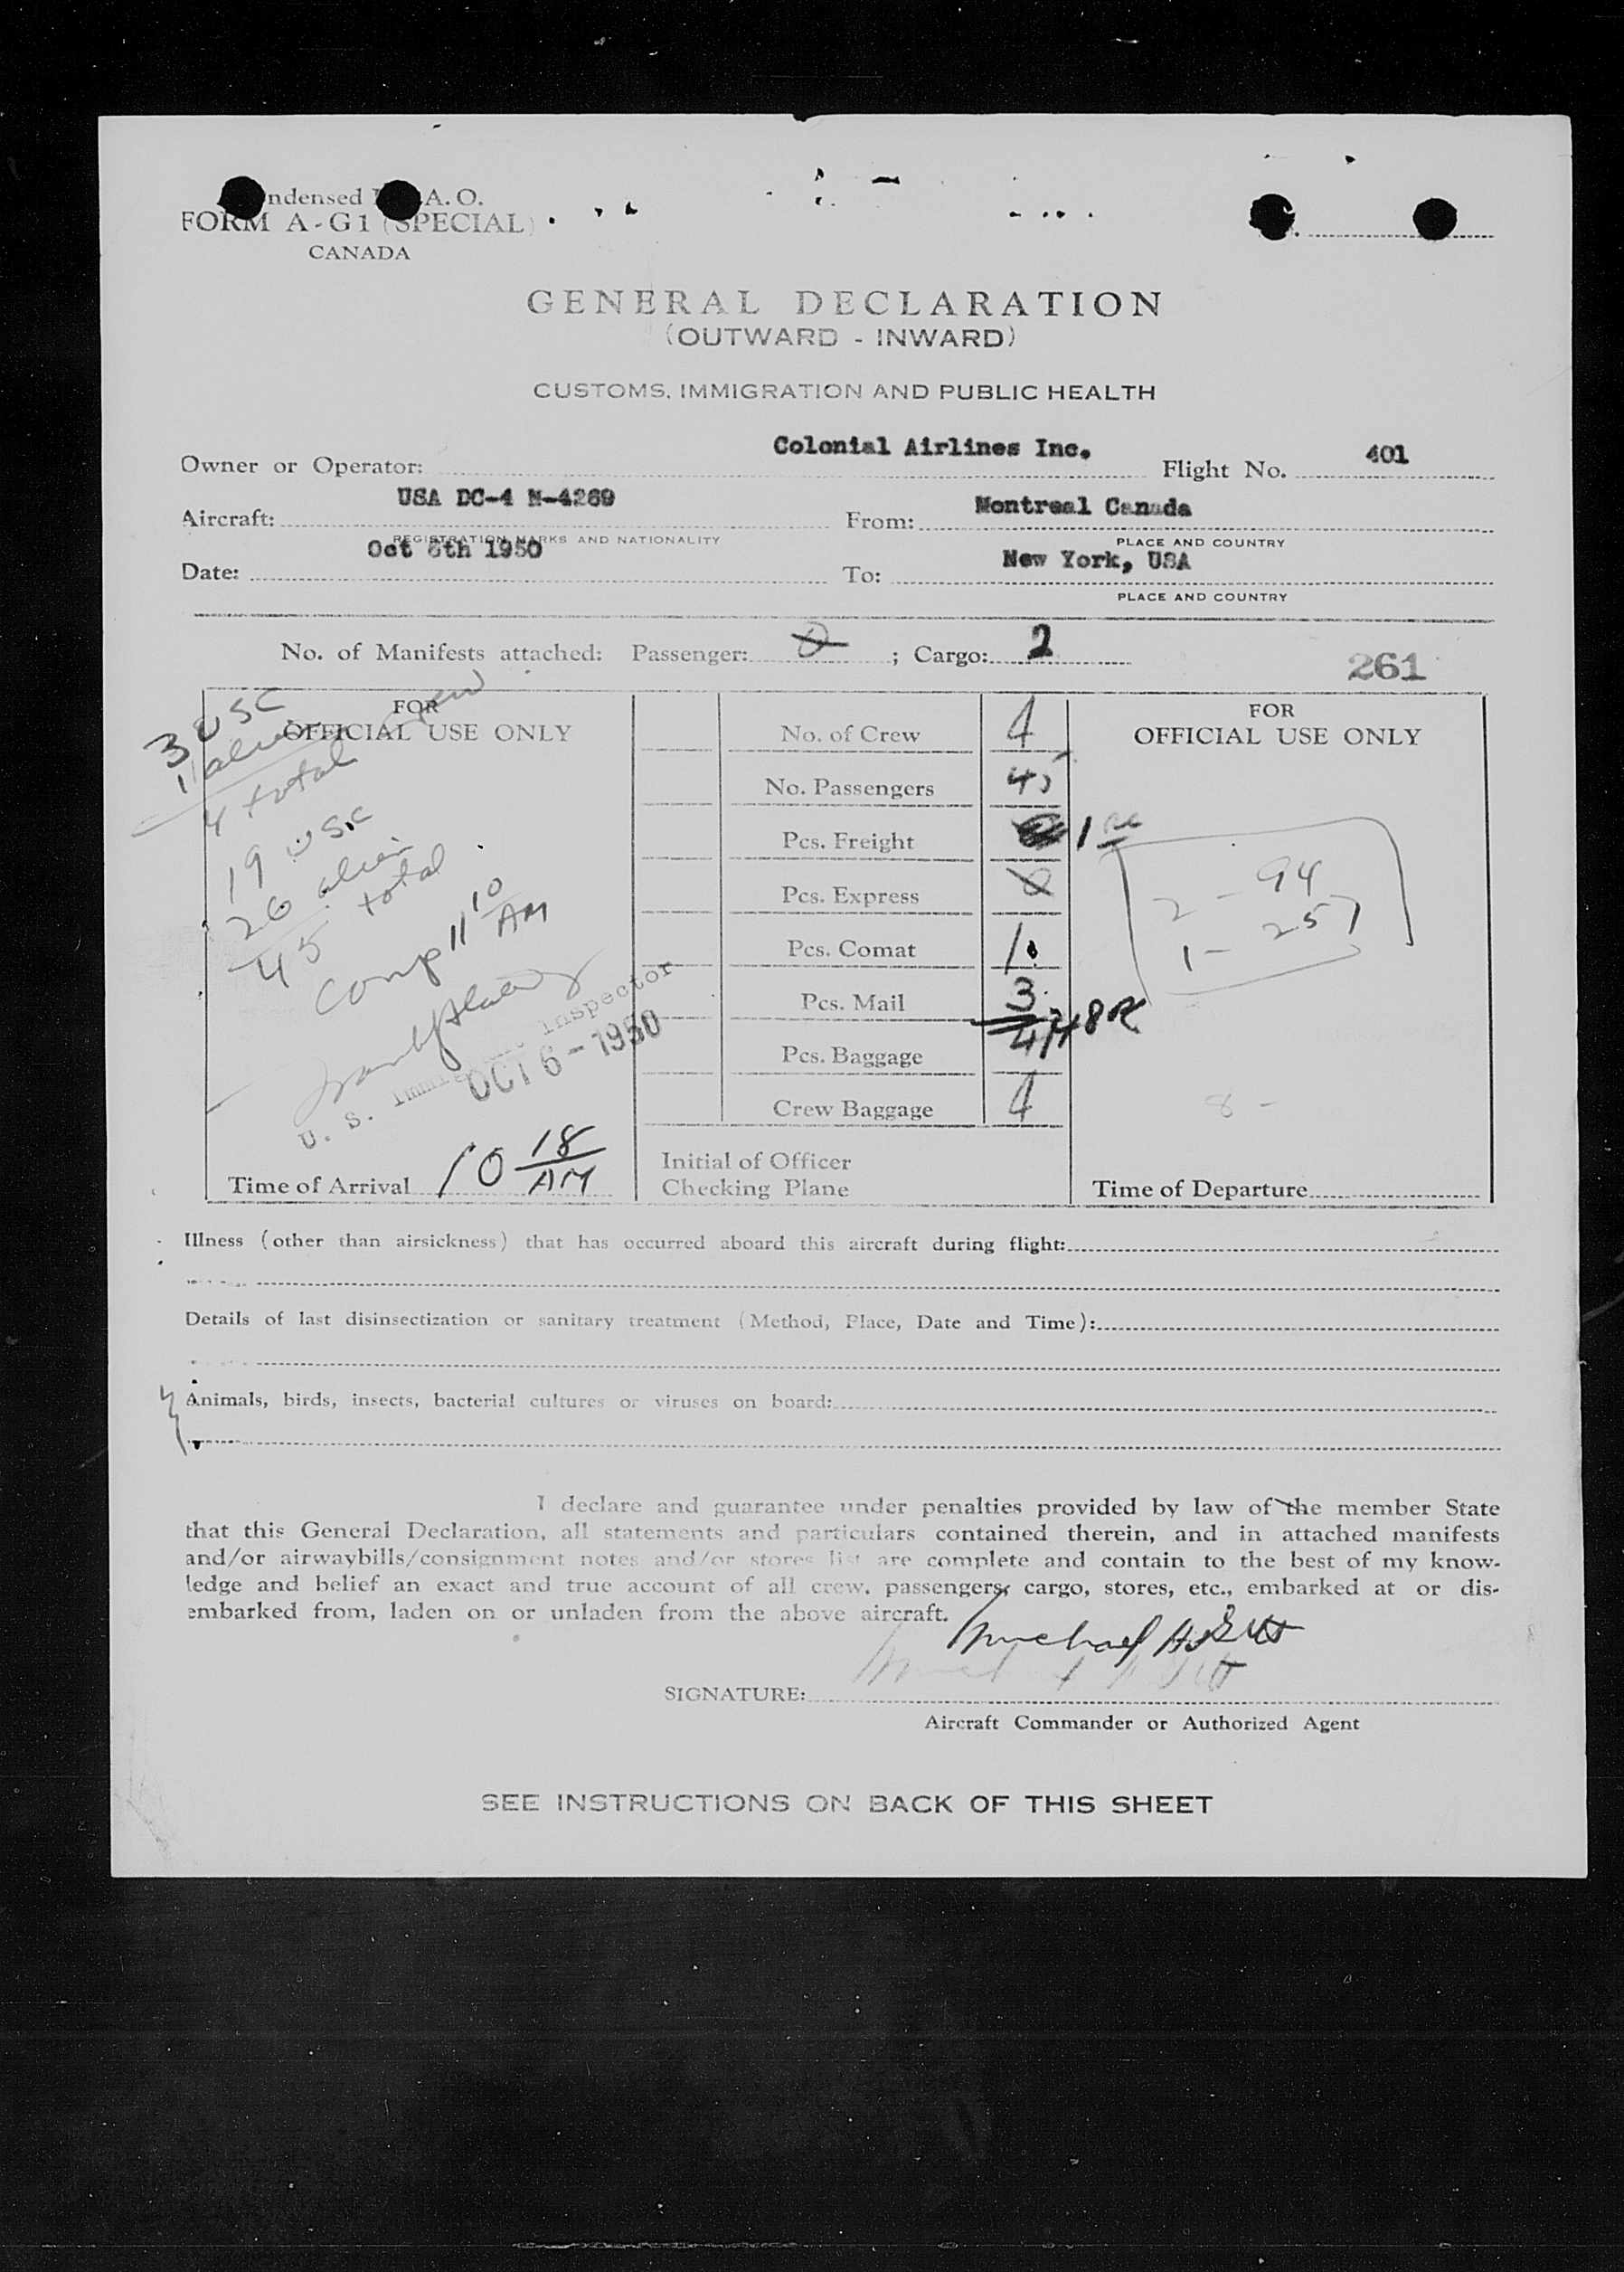 ndensed I A. O.
FORM A-G1 (SPECIAL)
CANADA
GENERAL DECLARATION
(OUTWARD - INWARD)
CUSTOMS, IMMIGRATION AND PUBLIC HEALTH
Owner or Operator: Colonial Airlines Inc. Flight No. 401
Aircraft: USA DC-4 N-4269 From: Montreal Canada
REGISTRATION MARKS AND NATIONALITY PLACE AND COUNTRY
Date: Oct 6th 1950 To: New York, USA
PLACE AND COUNTRY
No. of Manifests attached: Passenger: 0 ; Cargo: 2
261
FOR
OFFICIAL USE ONLY
3 USC
1 alien crew
4 total
19 USC
26 alien
45 total
Comp 11 10 AM
U. S. Immigrant Inspector
OCT 6 - 1950
Time of Arrival 10 18 AM
No. of Crew 4
No. Passengers 45
Pcs. Freight 1
Pcs. Express 0
Pcs. Comat 1
Pcs. Mail 3
Pcs. Baggage 48
Crew Baggage 4
Initial of Officer
Checking Plane
FOR
OFFICIAL USE ONLY
2 - 94
1 - 257
8 -
Time of Departure
Illness (other than airsickness) that has occurred aboard this aircraft during flight:
Details of last disinsectization or sanitary treatment (Method, Place, Date and Time):
Animals, birds, insects, bacterial cultures or viruses on board:
I declare and guarantee under penalties provided by law of the member State
that this General Declaration, all statements and particulars contained therein, and in attached manifests
and/or airwaybills/consignment notes and/or stores list are complete and contain to the best of my know-
ledge and belief an exact and true account of all crew, passengers, cargo, stores, etc., embarked at or dis-
embarked from, laden on or unladen from the above aircraft.
Michael
SIGNATURE:
Aircraft Commander or Authorized Agent
SEE INSTRUCTIONS ON BACK OF THIS SHEET